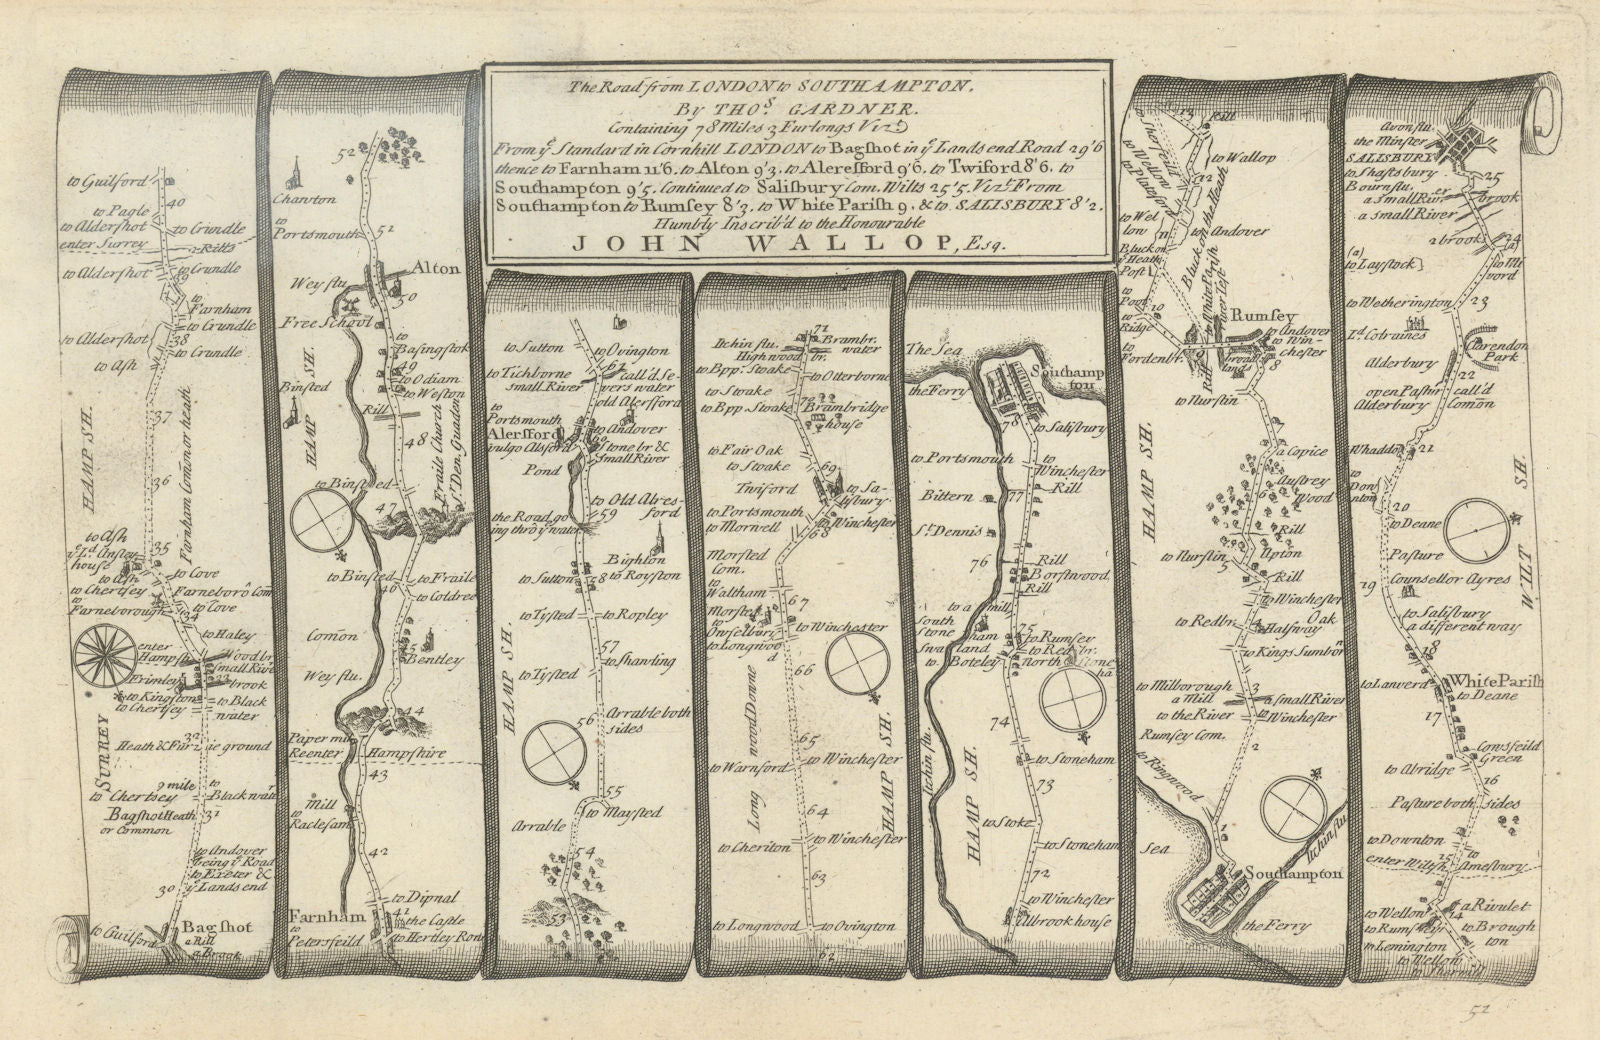 The Road from LONDON to SOUTHAMPTON.
By THOS. GARDNER.
Containing 78 Miles 3 Furlongs Vizt.
From ye Standard in Cornhill LONDON to Bagshot in ye Lands end Road 29'6
thence to Farnham 11'6. to Alton 9'3, to Aleresford 9'6, to Twiford 8'6, to
Southampton 9'5. Continued to Salisbury Com. Wilts 25'5. Vizt. From
Southampton to Rumsey 8'3. to White Parish 9. & to SALISBURY 8'2.
Humbly Inscrib'd to the Honourable
JOHN WALLOP, Esq.
to Guilford
40
to Pagle
to Aldershot
to Crundle
enter Surrey
a Rill
to Aldershot
to Crundle
39
to Farnham
to Crundle
to Aldershot
38
to Crundle
to Ash
37
HAMP SH.
Farnham Comon or heath
36
to Ash
35
ye Ld. Ansley
house
to Cove
to Ash
to Chertsey
Farneboro Com
to
Farneborough
to Cove
34
to Haley
enter
Hampsh
Wood br.
small River
Frimley
33
brook
to Kingston
to Black
water
to Chertsey
SURREY
32
Heath & Furzie ground
9 mile
to Chertsey
to
Blackwater
31
Bagshot Heath
or Common
to Andover
being ye Road
to Exeter &
ye Lands end
30
to Guilford
Bagshot
a Rill
a Brook
52
Chawton
to
Portsmouth
51
Alton
Wey flu
50
Free School
to
Basingstok
49
HAMP SH.
Binsted
to Odiam
to Weston
Rill
48
Fraile Church
St. Den. Guarden
to Binsted
47
to Binsted
to Fraile
46
to Coldree
Comon
45
Bentley
Wey flu.
44
Paper mill
Reenter
Hampshire
43
Mill
to
Raclesam
42
to Dipnal
Farnham
41
the Castle
to
Petersfeild
to Hertley Row
to Sutton
to Ovington
61
to Tichborne
small River
call'd Se-
vers water
old Alersford
to
Portsmouth
Alersford
vulgo Alsford
to Andover
60
Stone br &
Small River
Pond
to Old Alres-
ford
the Road go
ing thro ye water
59
Bighton
to Sutton
58
to Royston
to Tysted
to Ropley
57
HAMP SH.
to Shanling
to Tysted
56
Arrable both
sides
55
to Maysted
Arrable
54
53
71
Itchin flu.
Highwood
br.
Brambr.
water
to Bpp. Stoake
to Otterborne
to Stoake
70
to Bpp. Stoake
Brambridge
house
to Fair Oak
to Stoake
69
Twiford
to Sa-
lisbury
to Portsmouth
to Winchester
to Morwell
68
Morsted
Com.
to
Waltham
67
Morsted
to
Owselbury
to Winchester
to Longwoo
d
66
Long wood Downe
HAMP SH.
65
to Warnford
to Winchester
64
to Cheriton
to Winchester
63
to Longwood
to Ovington
62
The Sea
Southamp
ton
the Ferry
78
to Salisbury
to Portsmouth
to
Winchester
Rill
77
Bittern
St. Dennis
76
Rill
Borstwood
Rill
to a mill
South
Stone
ham
75
to Rumsey
Swathland
to Red br.
to Boteley
North Stone
ha
74
Itchin flu.
HAMP SH.
to Stoneham
73
to Stoke
to Stoneham
72
to Winchester
Albrook house
13
Rill
to Sherfeild
to Wellow
to Plateford
to Wallop
12
Black on the Heath
to Wel
low
11
to Andover
Black on
ye Heath
Post
to
Pool
White Parish
10
Rumsey
to
Ridge
to Andover
to Win-
chester
to
Fordenbr.
9
Rill
broad
land
8
to Nurstin
HAMP SH.
7
a Copice
Austrey
Wood
6
Rill
Upton
to Nurstin
5
Rill
to Winchester
to Redbr.
4
Halfway
Oak
to Kings Sumborn
to Milborough
3
a Mill
a small River
to the River
to Winchester
Rumsey Com.
2
to Ringwood
1
Sea
Itchin flu
Southampton
the Ferry
Avon flu.
the Minster
SALISBURY
to Shaftsbury
25
Bourn flu.
a small River
brook
a small River
2 brook
24
to Laystock
to Wil
vord
to Wetherington
23
Ld. Cobraines
Clarendon
Park
Alderbury
22
open Pastur
call'd
Alderbury
Comon
Whaddon
21
to
Don
nton
20
to Deane
Pasture
WILT SH.
19
Counsellor Ayres
to Salisbury
a different way
18
to Lanverd
White Parish
to Deane
17
Cowsfeild
Green
to Abridge
16
Pasture both sides
to Downton
to
Amesbury
enter Wiltsh
15
to Wellow
a Rivulet
14
to Rumsey
to Brough
ton
to Lemington
to Wellow
to Sherfeild
51